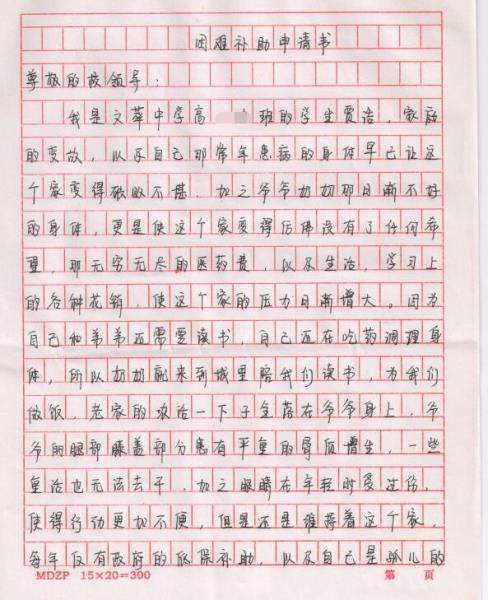 困难补助申请书
尊敬的校领导:
我是文华中学高 班的学生贾洁,家庭
的变故,以及自己那常年患病的身体早已让这
个家变得破败不堪,加之爷爷奶奶那日渐不好
的身体,更是使这个家变得仿佛没有了任何希
望,那无穷无尽的医药费,以及生活,学习上
的各种花销,使这个家的压力日渐增大。因为
自己和弟弟还需要读书,自己还在吃药调理身
体,所以奶奶就来到城里陪我们读书,为我们
做饭,老家的农活一下子全落在爷爷身上,爷
爷的腿部膝盖部分患有严重的骨质增生,一些
重活也无法去干,加之眼睛在年轻时受过伤,
使得行动更加不便,但是还是维持着这个家,
每年仅有政府的低保补助,以及自己是孤儿的
MDZP 15×20=300 第 页